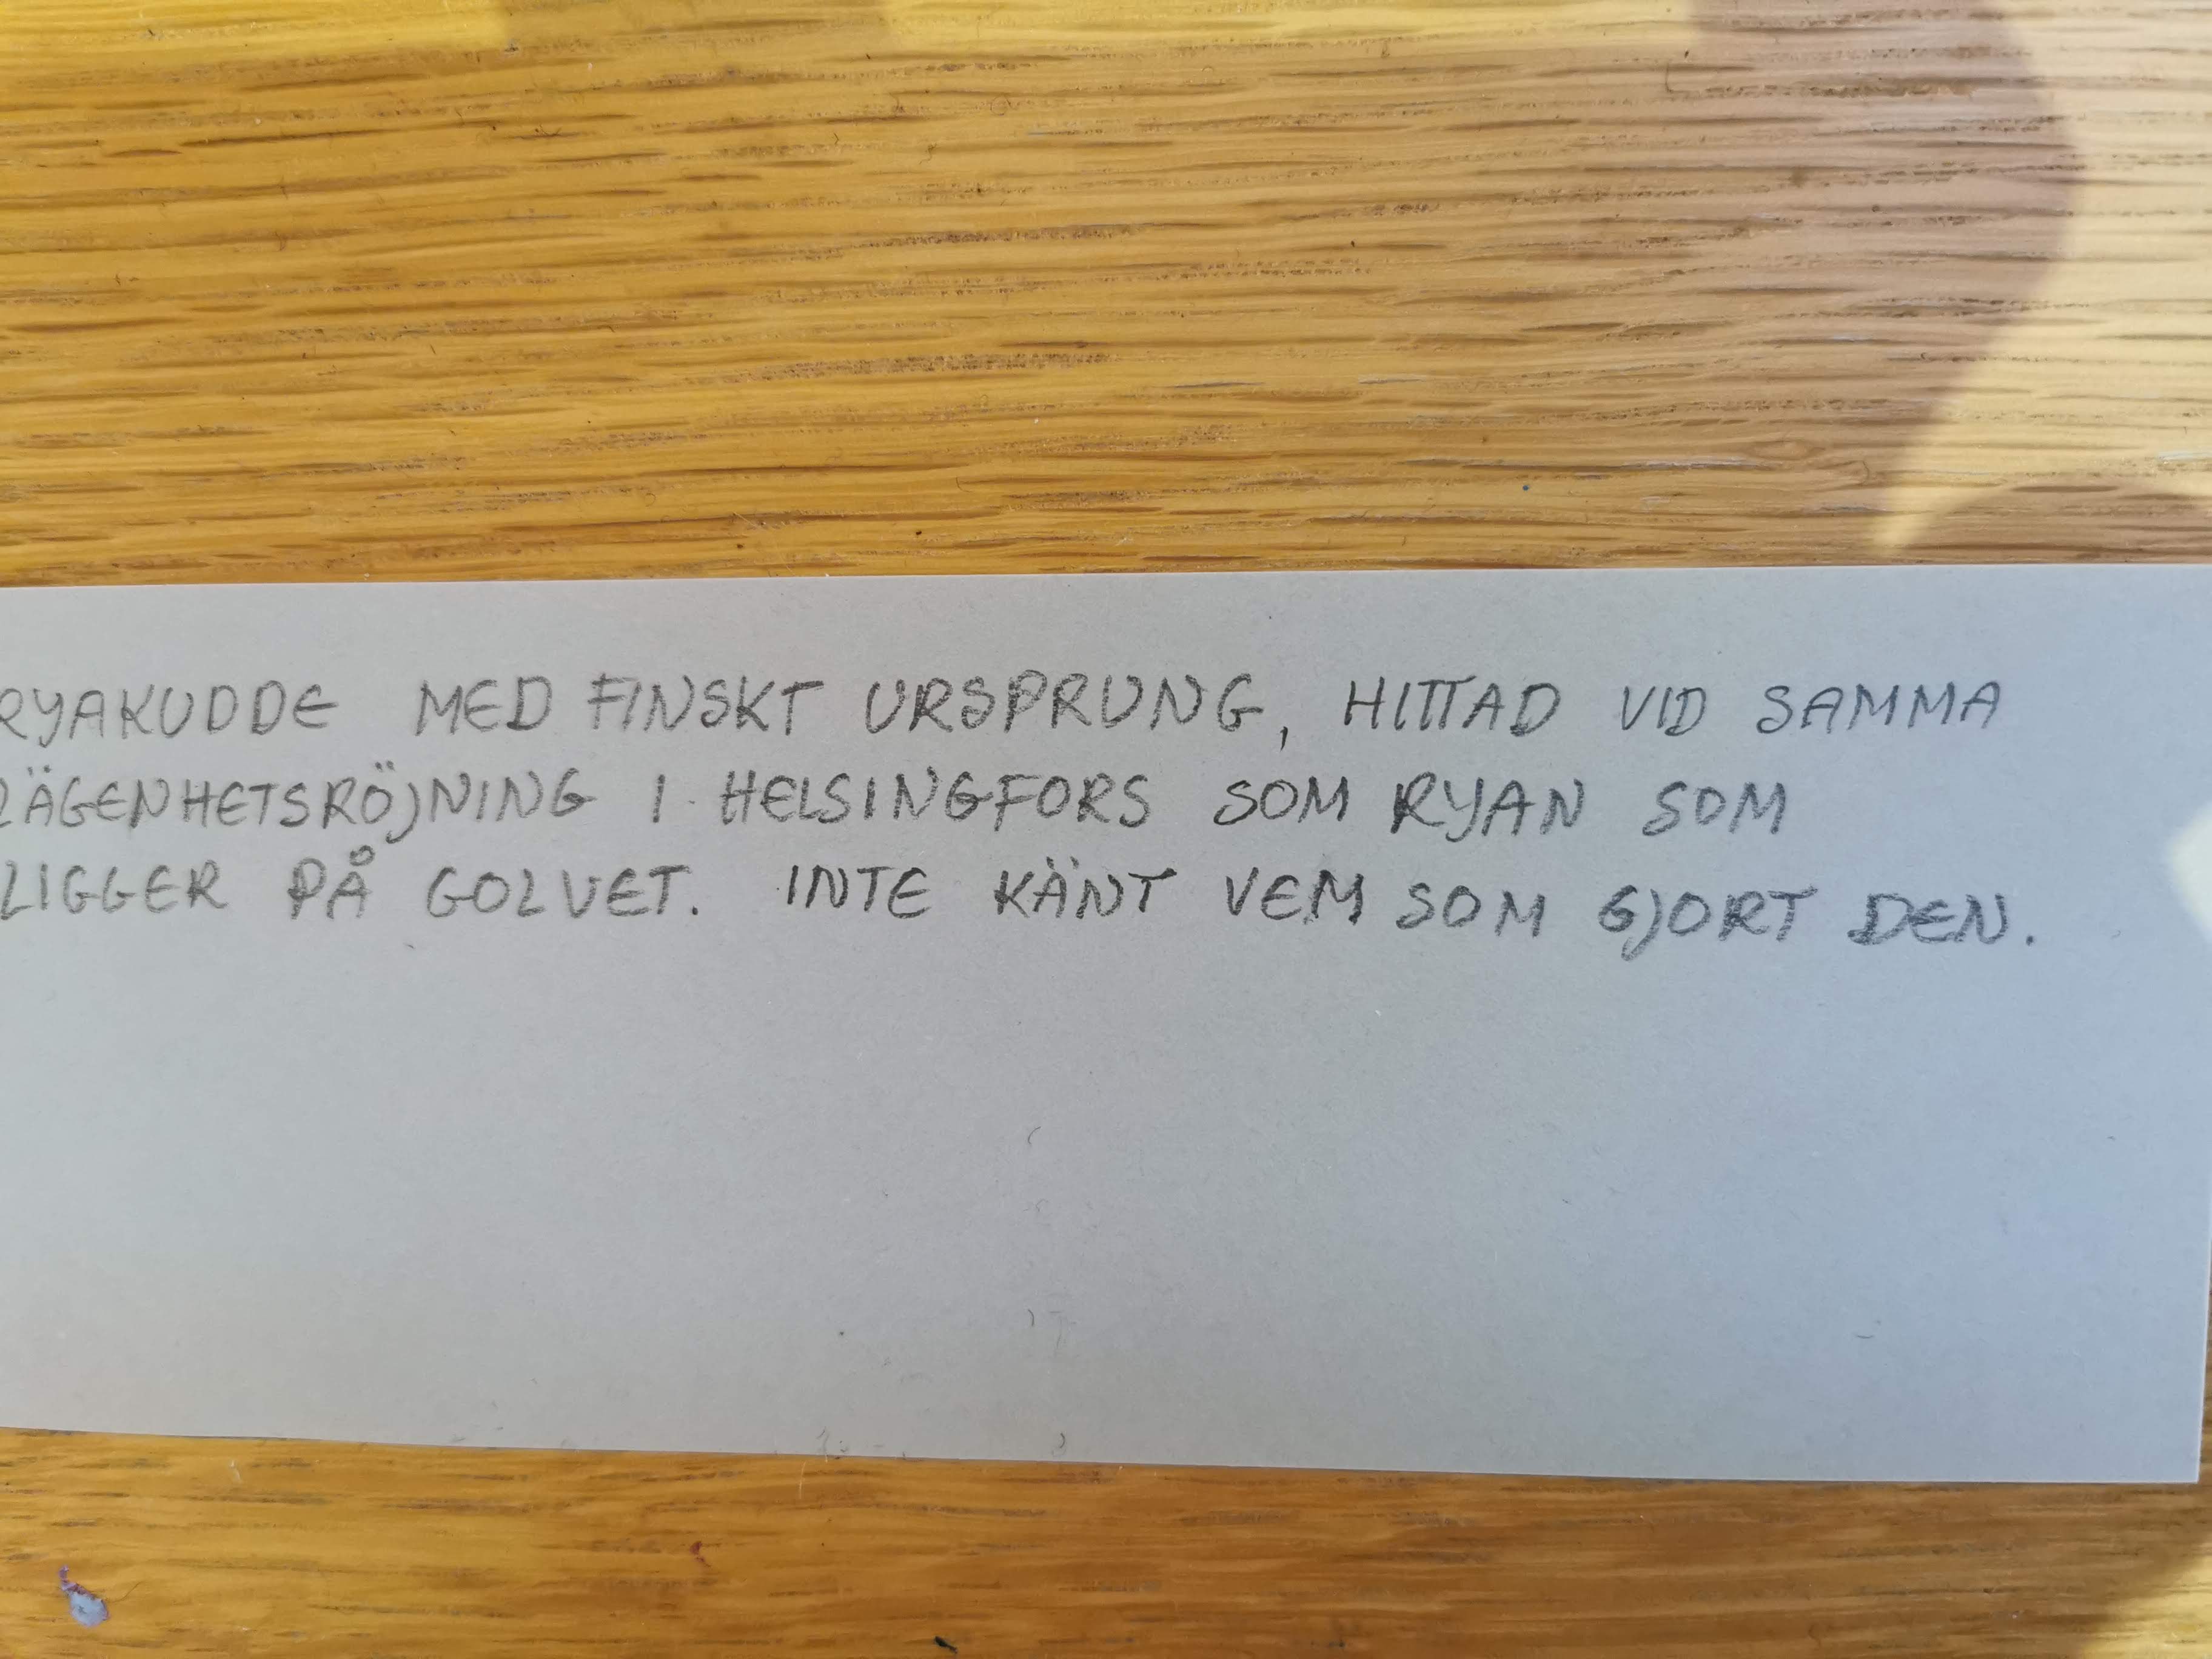 RYAKUDDE MED FINSKT URSPRUNG, HITTAD VID SAMMA
LÄGENHETSRÖJNING I HELSINGFORS SOM RYAN SOM
LIGGER PÅ GOLVET. INTE KÄNT VEM SOM GJORT DEN.